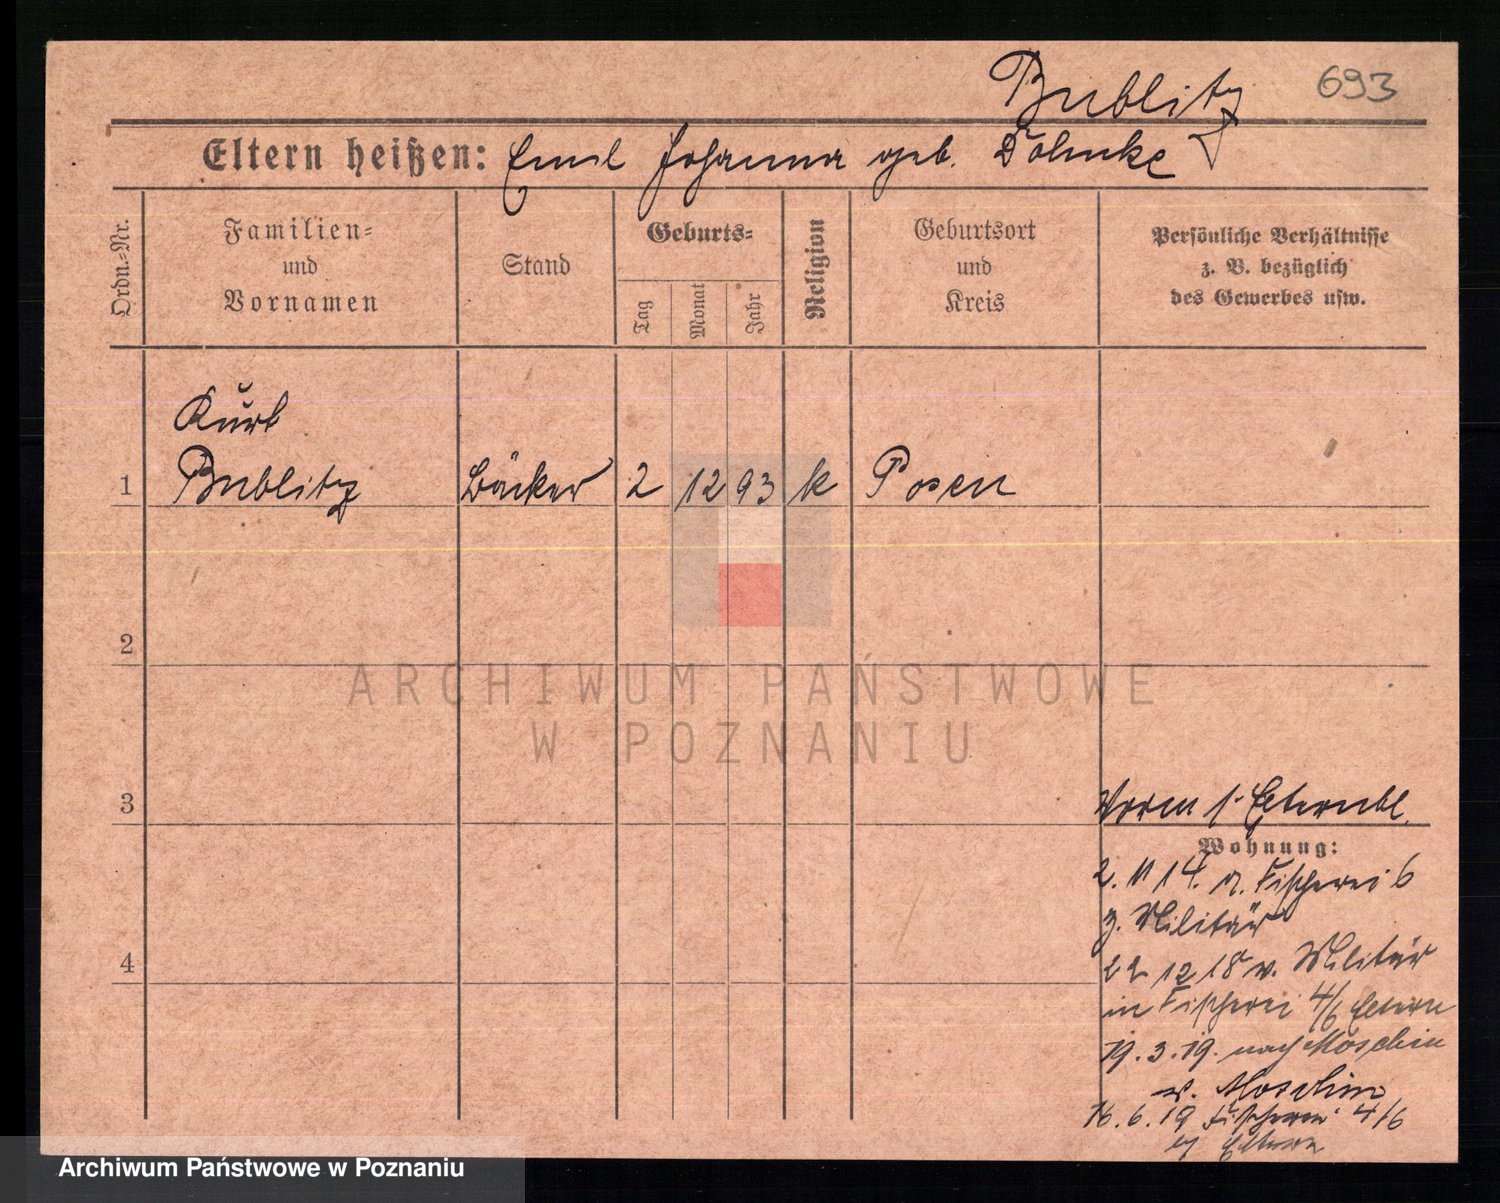 Bublitz 693
Eltern heißen: Emil Johanna geb. Dohnke
Ordn.-Nr.
Familien-
und
Vornamen
Stand
Geburts-
Tag
Monat
Jahr
Religion
Geburtsort
und
Kreis
Persönliche Verhältnisse
z. B. bezüglich
des Gewerbes usw.
Kurt
1 Bublitz Bäcker 2 12 93 k Posen
2
ARCHIWUM PAŃSTWOWE
W POZNANIU
3
Elternbl.
Wohnung:
2. 11 14. v. Fischerei 6
z. Militär
22 12 18 v. Militär
in Fischerei 4/6 Eltern
4
19. 3. 19. nach Moschin
v. Moschin
16. 6. 19 Fischerei 4/6
Eltern
Archiwum Państwowe w Poznaniu